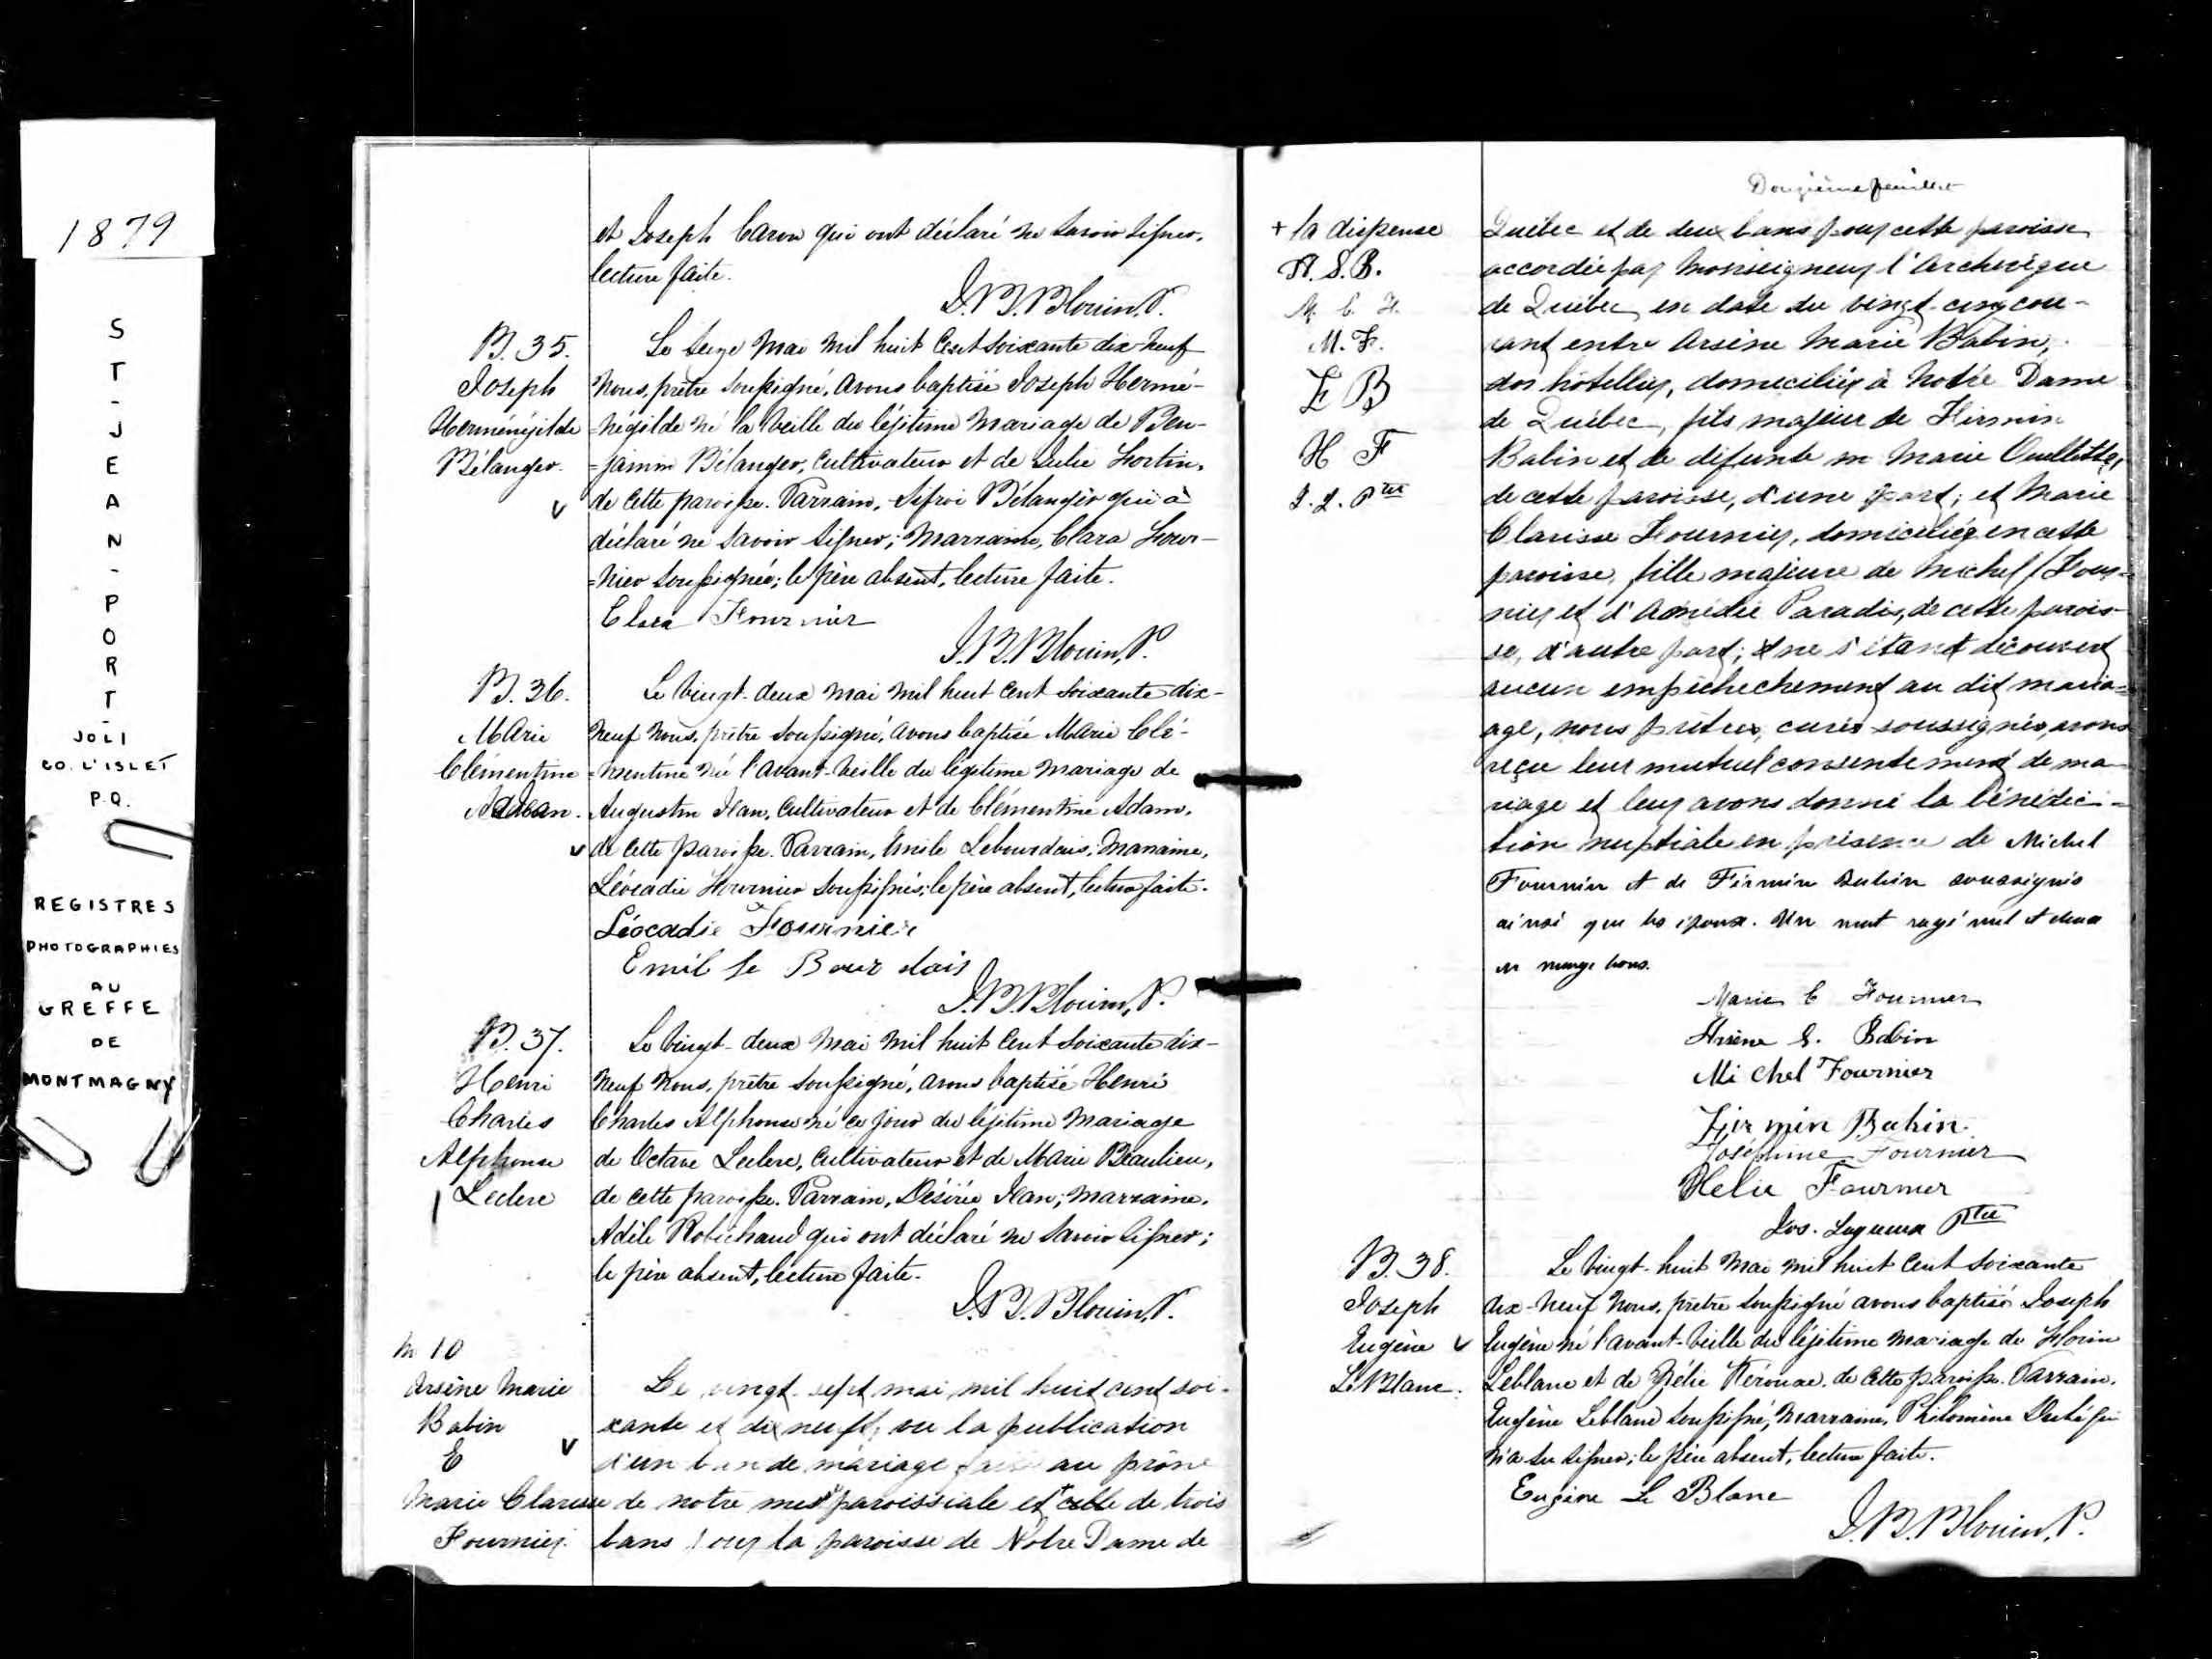 1879
S
T
-
J
E
A
N
-
P
O
R
T
-
JOLI
CO. L'ISLET
P.Q.
REGISTRES
PHOTOGRAPHIES
AU
GREFFE
DE
MONTMAGNY
et Joseph Caron qui ont déclaré ne savoir signer,
lecture faite.
J.B.Blouin, P.
B. 35.
Joseph
Herménégilde
Bélanger.
Le seize mai mil huit cent soixante dix-neuf
nous, prêtre soussigné, avons baptisé Joseph Hermé-
=négilde né la veille du légitime mariage de Ben-
=jamin Bélanger, cultivateur et de Julie Fortin,
de cette paroisse. Parrain, Sifroi Bélanger qui a
déclaré ne savoir signer; marraine, Clara Four-
=nier soussignée; le père absent, lecture faite.
Clara Fournier
J.B.Blouin, P.
B. 36.
Marie
Clémentine
Jean.
Le vingt-deux mai mil huit cent soixante dix-
neuf nous, prêtre soussigné, avons baptisé Marie Clé-
=mentine née l'avant-veille du légitime mariage de
Augustin Jean, cultivateur et de Clémentine Adam,
de cette paroisse. Parrain, Emile Lebourdais, marraine,
Léocadie Fournier soussignés; le père absent, lecture faite.
Léocadie Fournier
Emil le Bourdais
J.B.Blouin, P.
B. 37.
Henri
Charles
Alphonse
Leclerc
Le vingt-deux mai mil huit cent soixante dix-
neuf nous, prêtre soussigné, avons baptisé Henri
Charles Alphonse né ce jour du légitime mariage
de Octave Leclerc, cultivateur et de Marie Beaulieu,
de cette paroisse. Parrain, Désiré Jean; marraine,
Adèle Robichaud qui ont déclaré ne savoir signer;
le père absent, lecture faite.
J.B.Blouin, P.
M 10
Arsène Marie
Babin
&
Marie Clarisse
Fournier.
Le vingt-sept mai, mil huit cent soi-
xante et dix neuf, vu la publication
d'un ban de mariage faite au prône
de notre messe paroissiale et celle de trois
bans pour la paroisse de Notre Dame de
Douzième feuillet
+ la dispense
A. S. B.
M. C. F.
M. F.
F B
H F
J. L. Ptre
Québec et de deux bans pour cette paroisse
accordée par Monseigneur l'Archevêque
de Québec en date du vingt-cinq cou-
rant entre Arsène Marie Babin,
hôtellier, domicilié à Notre Dame
de Québec, fils majeur de Firmin
Babin et de défunte Marie Ouellette,
de cette paroisse, d'une part; et Marie
Clarisse Fournier, domiciliée en cette
paroisse, fille majeure de Michel Four-
nier et d'Aémédie Paradis, de cette parois-
se, d'autre part; & ne s'étant découvert
aucun empêchechement au dit mari-
age, nous prêtre, curé soussigné, avons
reçu leur mutuel consentement de ma-
riage et leur avons donné la bénédic-
tion nuptiale en présence de Michel
Fournier et de Firmin Babin soussignés
ainsi que les époux. Un mot rayé nul et deux
en marge bons.
Marie C Fournier
Arsène S. Babin
Michel Fournier
Firmin Babin
Joséphine Fournier
Helie Fournier
Jos. Lagueux Ptre
B. 38.
Joseph
Eugène
LeBlanc.
Le vingt-huit mai mil huit cent soixante
dix-neuf nous, prêtre soussigné avons baptisé Joseph
Eugène né l'avant-veille du légitime mariage de Florin
Leblanc et de Zélie Kérouac, de cette paroisse. Parrain,
Eugène Leblanc soussigné; marraine, Philomène Dubé qui
n'a su signer; le père absent, lecture faite.
Eugène Le Blanc
J.B.Blouin, P.